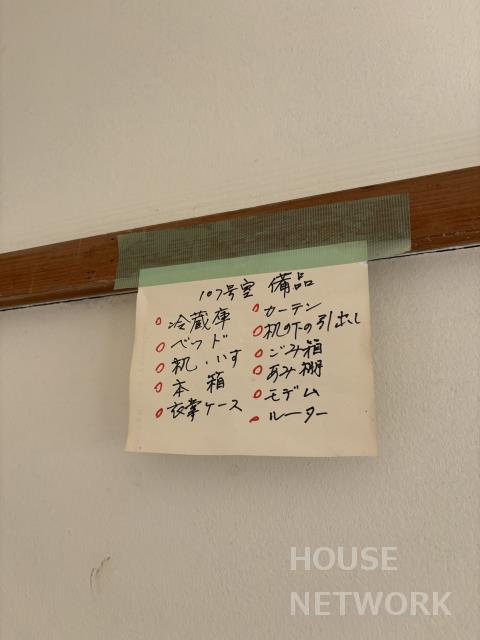 107号室 備品
冷蔵庫
ベッド
机・いす
本箱
衣掌ケース
カーテン
机の下の引出し
ごみ箱
あみ棚
モデム
ルーター
HOUSE
NETWORK